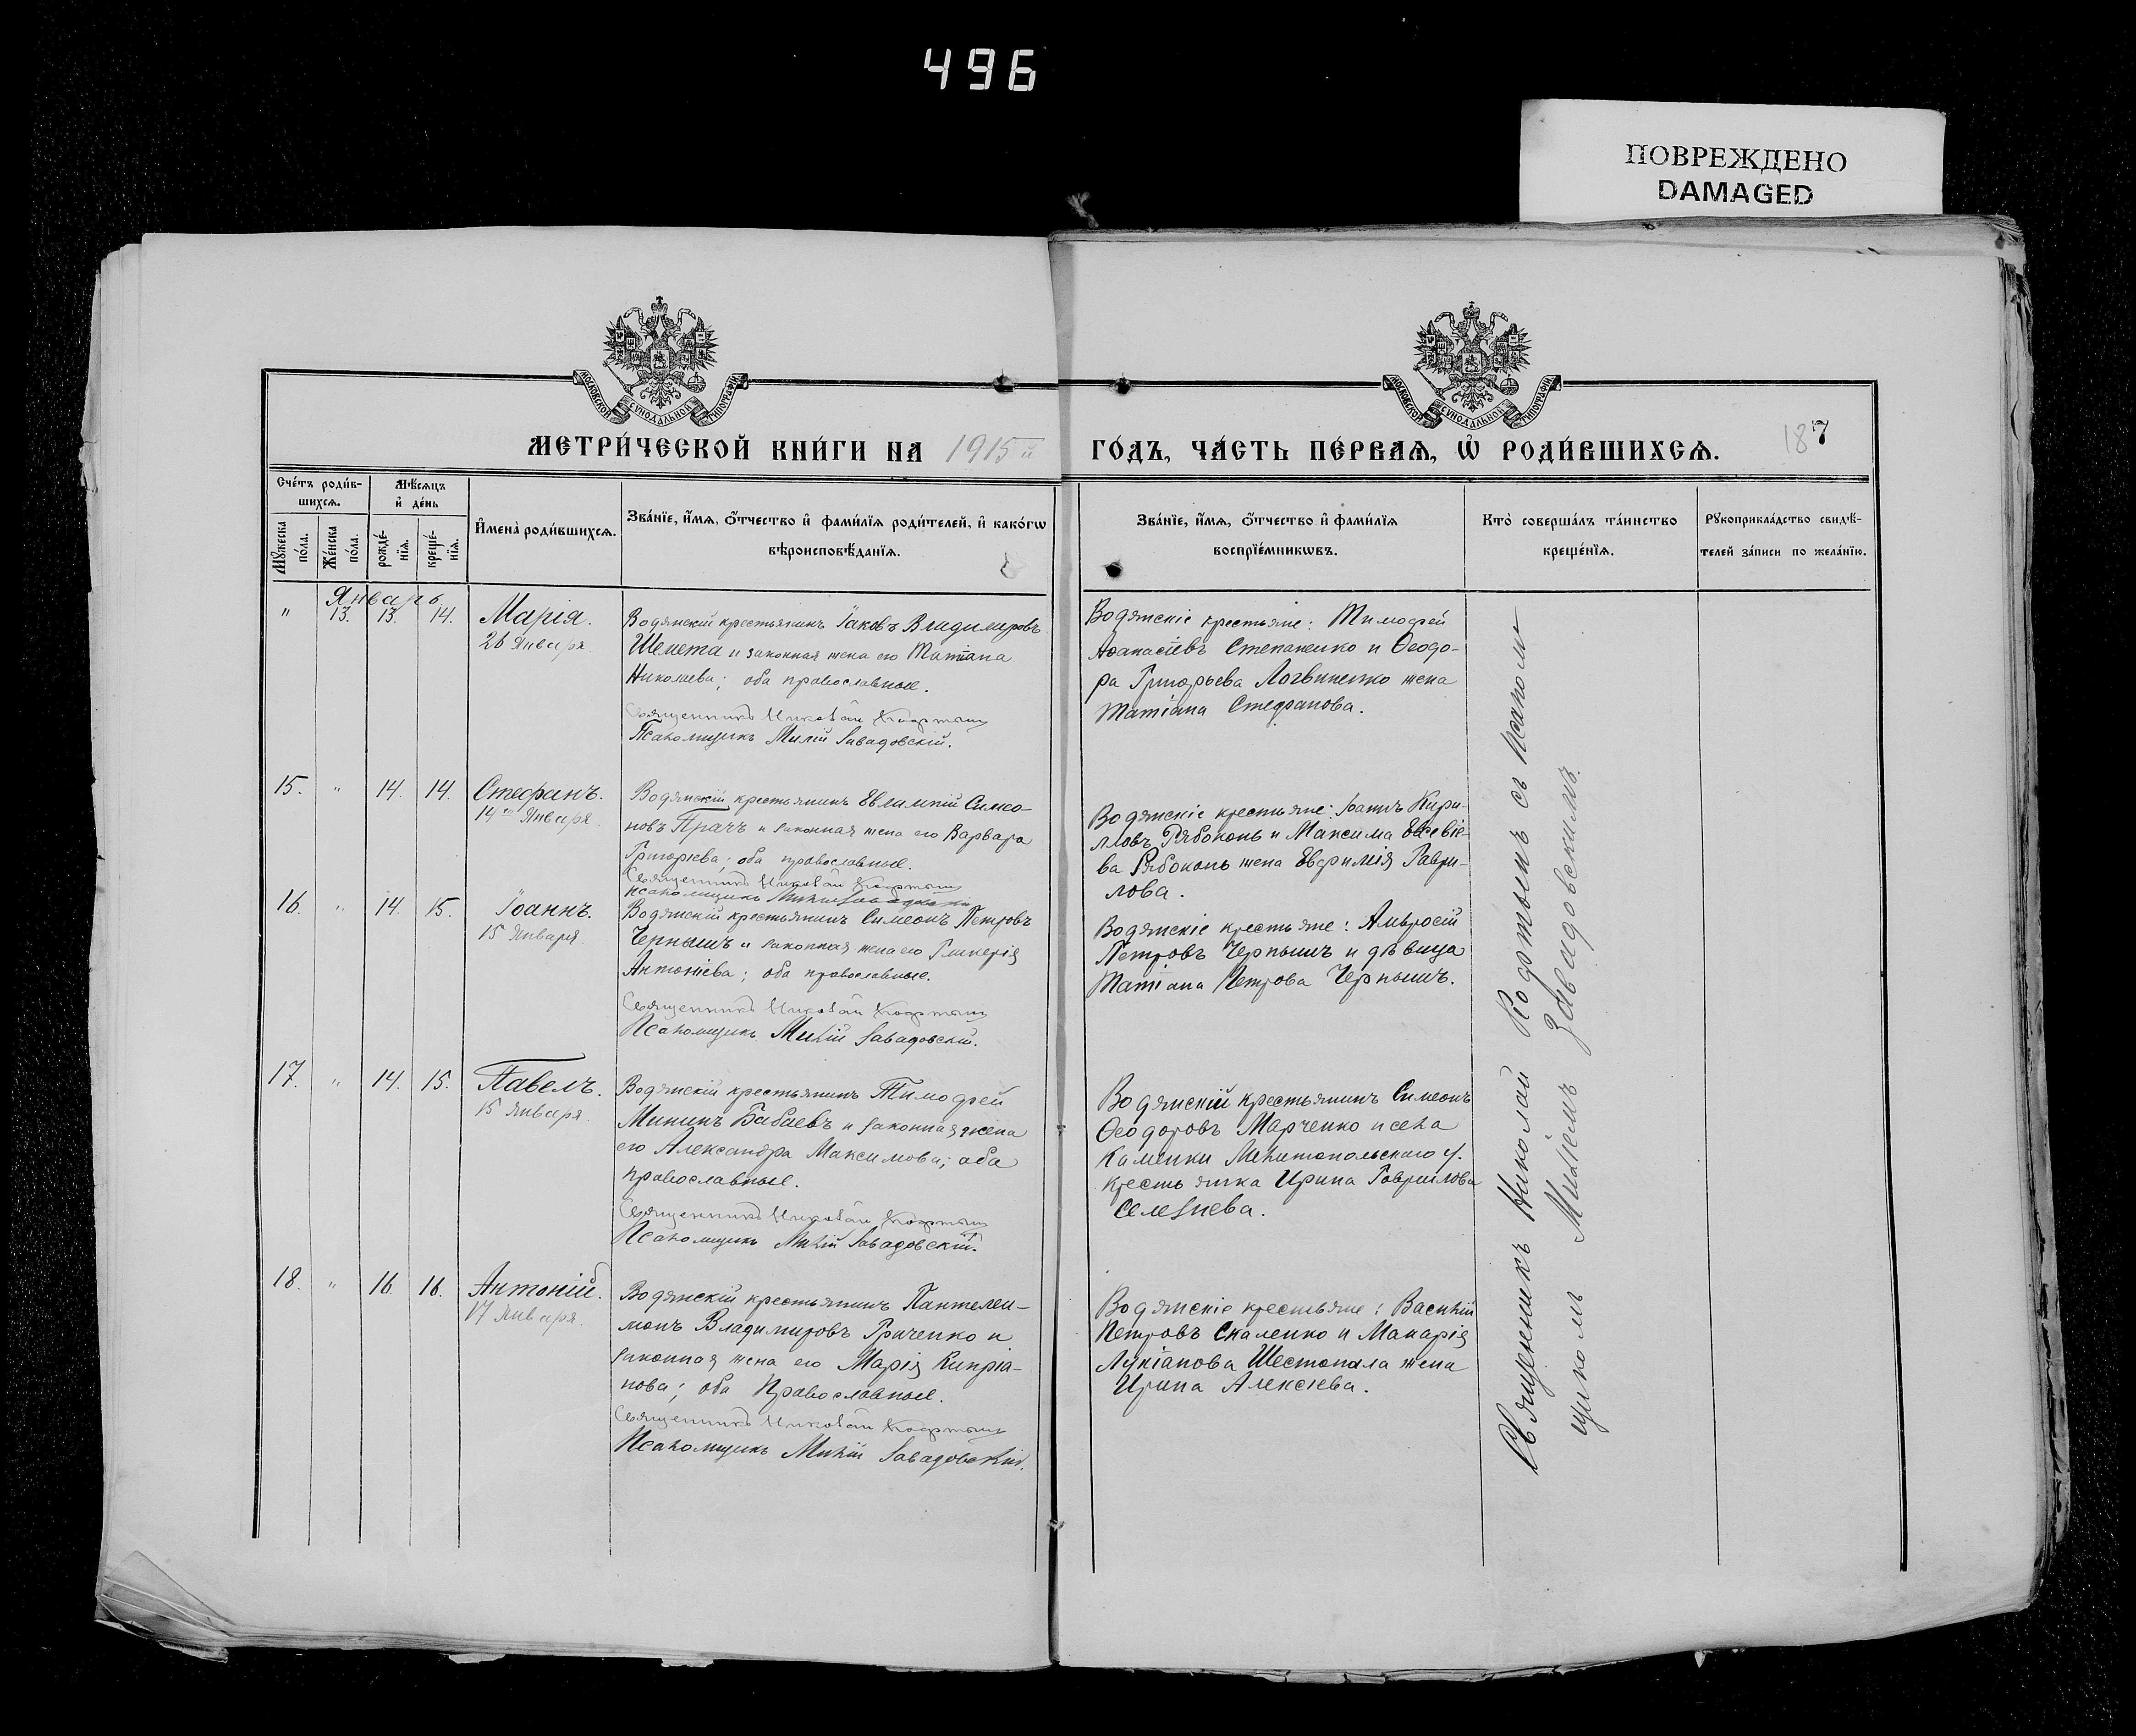 496
ПОВРЕЖДЕНО
DAMAGED
МОСКОВСКОЙ СУНОДАЛЬНОЙ ТИПОГРАФІИ
МОСКОВСКОЙ СУНОДАЛЬНОЙ ТИПОГРАФІИ
МЕТРИ́ЧЕСКОЙ КНИ́ГИ НА 1915й
ГО́ДЪ, ЧА́СТЬ ПЕ́РВАѦ, Ѡ РОДИ́ВШИХСѦ.
187
Сче́тъ роди́в-
шихсѧ.
Мꙋжеска по́ла.
Же́нска по́ла.
Мѣ́сѧцъ
и҆ де́нь
рожде́-
нїѧ.
креще́-
нїѧ.
И҆мена̀ роди́вшихсѧ.
Зва́нїе, и҆́мѧ, ѻ҆́тчество и҆ фами́лїѧ роди́телей, и҆ како́гѡ
вѣроисповѣ́данїѧ.
Зва́нїе, и҆́мѧ, ѻ҆́тчество и҆ фами́лїѧ
воспрїе́мникѡвъ.
Кто̀ соверша́лъ та́инство
креще́нїѧ.
Рꙋкоприкла́дство свидѣ́-
телей за́писи по жела́нїю.
Январь
" 13. 13. 14. Марія.
26 Января.
Водянскій крестьянинъ Іаковъ Владимировъ
Шемета и законная жена его Татіана
Николаева; оба православные.
Священникъ Николай
Псаломщикъ Милій Завадовскій.
Водянскіе крестьяне: Тимофей
Афанасіевъ Степаненко и Ѳеодо-
ра Григорьева Логвиненко жена
Татіана Стефанова.
15. " 14. 14. Стефанъ.
14го Января
Водянскій крестьянинъ Евлампій Симео-
новъ Прачъ и законная жена его Варвара
Григоріева; оба православные.
Священникъ Николай
Псаломщикъ Милій Завадовскій
Водянскіе крестьяне: Іоаннъ Кири-
лловъ Рябоконь и Максима Евсевіе-
ва Рябоконь жена Евфимія Гаври-
лова.
16. " 14. 15. Іоаннъ.
15 Января
Водянскій крестьянинъ Симеонъ Петровъ
Чернышъ и законная жена его Гликерія
Антоніева; оба православные.
Священникъ Николай
Псаломщикъ Милій Завадовскій.
Водянскіе крестьяне: Амвросій
Петровъ Чернышъ и дѣвица
Татіана Петрова Чернышъ.
17. " 14. 15. Павелъ.
15 Января.
Водянскій крестьянинъ Тимофей
Мининъ Бабаевъ и законная жена
его Александра Максимова; оба
православные.
Священникъ Николай
Псаломщикъ Милій Завадовскій.
Водянскій крестьянинъ Симеонъ
Ѳеодоровъ Марченко и села
Каменки Мелитопольскаго у.
крестьянка Ирина Гавриилова
Селезнева.
18. " 16. 16. Антоній.
17 Января.
Водянскій крестьянинъ Пантелеи-
монъ Владимировъ Гриченко и
законная жена его Марія Кипріа-
нова; оба Православные.
Священникъ Николай
Псаломщикъ Милій Завадовскій.
Водянскіе крестьяне: Василій
Петровъ Скаленко и Макарія
Лукіанова Шестопала жена
Ирина Алексѣева.
Священникъ Николай съ Псалом-
щикомъ Миліемъ Завадовскимъ.